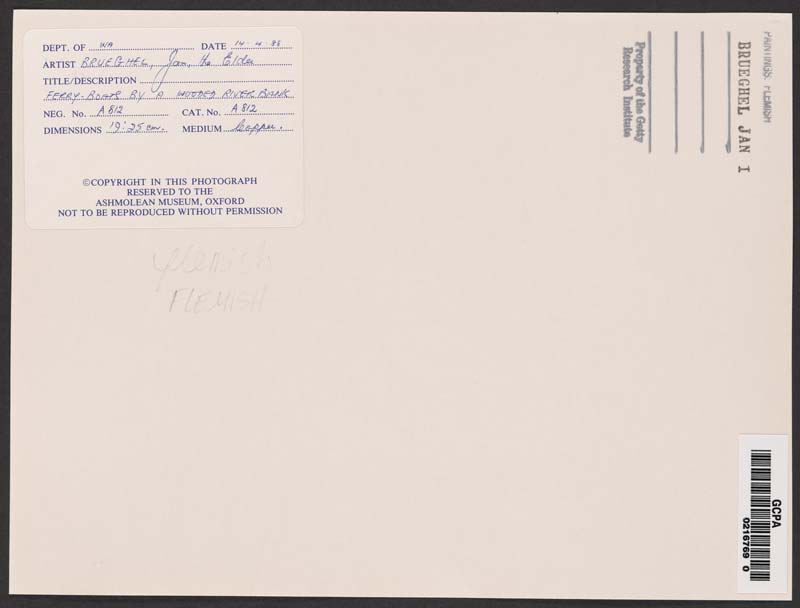 DEPT. OF WA DATE 14-4-88
ARTIST BRUEGHEL, Jan, the Elder
TITLE/DESCRIPTION
FERRY-BOATS BY A WOODED RIVER BANK
NEG. No. A 812 CAT. No. A 812
DIMENSIONS 19:25 cm. MEDIUM Copper.
©COPYRIGHT IN THIS PHOTOGRAPH
RESERVED TO THE
ASHMOLEAN MUSEUM, OXFORD
NOT TO BE REPRODUCED WITHOUT PERMISSION
FLEMISH
PAINTINGS: FLEMISH
BRUEGHEL JAN I
Property of the Getty
Research Institute
GCPA
0216769 0